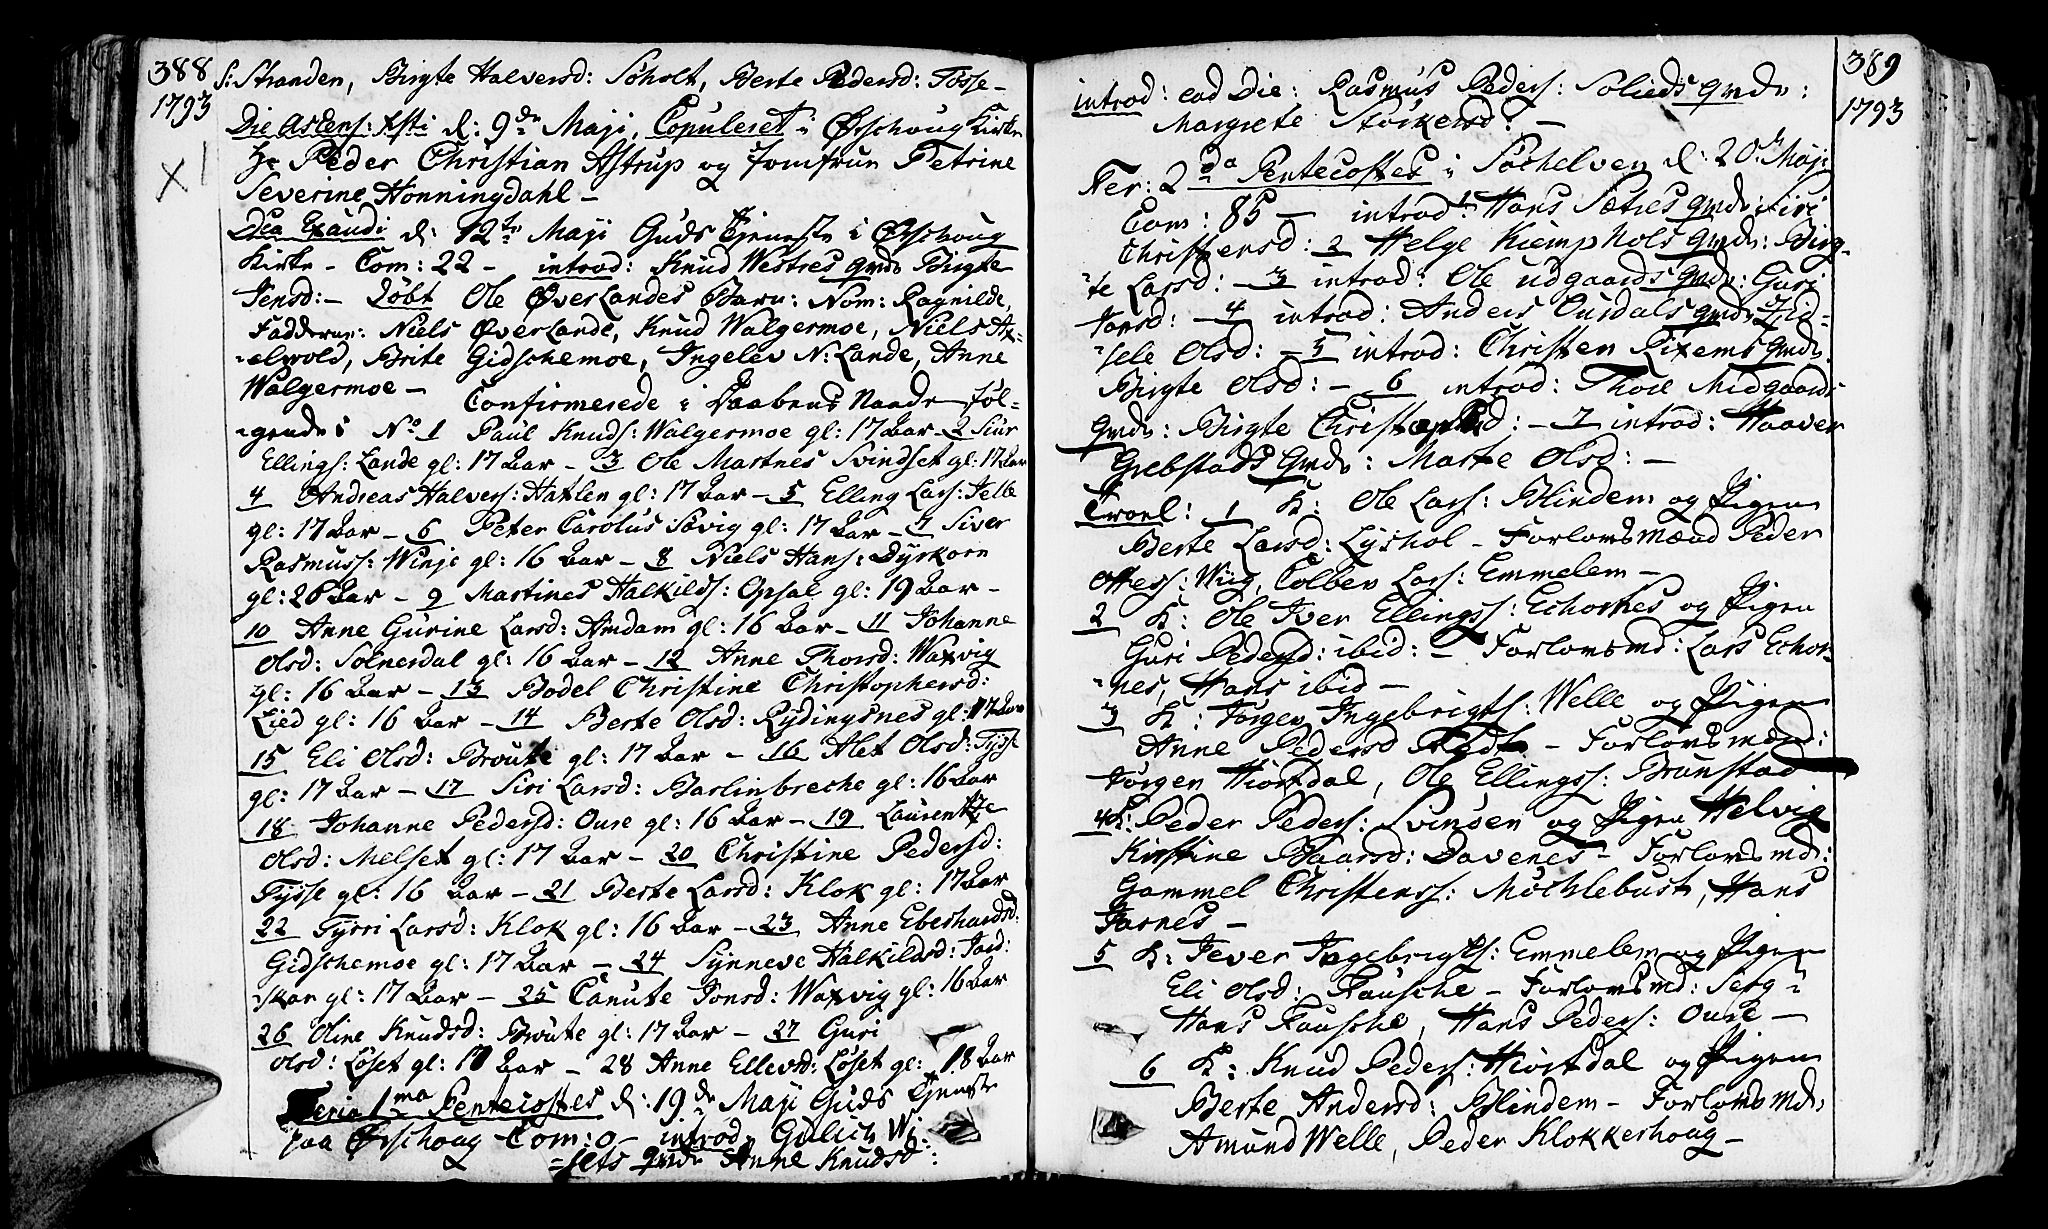 388
1793
S: Stranden, Birgte Halversd: Søholt, Berte Pedersd: Tosse-
Die Ascens: Xsti d: 9de Maji, Copuleret i Ørschoug Kirke
Hr Peder Christian Astrup og Jomfrue Petrine
Severine Honningdahl -
Dca Exaudi d: 12te Maji Guds Tjeneste i Ørschoug
Kirke - Com: 22 - introd: Knud Westres qvde Birgte
Jensd: - Døbt Ole Øverlandes Barn: Nom: Ragnilde,
Fadderne: Niels Øverlande, Knud Walgermoe, Niels Ax-
-elvold, Brite Gidschemoe, Ingelev N: Lande, Anne
Walgermoe -
Confirmerede i Daabens Naade føl-
-gende: No 1 Paul Knuds: Walgermoe gl: 17 Aar - 2 Siur
Ellings: Lande gl: 17 Aar - 3 Ole Martnes Svindset gl: 17 Aar
4 Andreas Halvers: Hatlen gl: 17 Aar - 5 Elling Lars: Jelle
gl: 17 Aar - 6 Peter Carolus Søvig gl: 17 Aar - 7 Siver
Rasmuss: Winje gl: 16 Aar - 8 Niels Hans: Dyrkorn
gl: 26 Aar - 9 Martines Halkilds: Opsal gl: 19 Aar -
10 Anne Gurine Larsd: Amdam gl: 16 Aar - 11 Johanne
Olsd: Solnerdal gl: 16 Aar - 12 Anne Thorsd: Waxvig
gl: 16 Aar - 13 Bodel Christine Christophersd:
Lied gl: 16 Aar - 14 Berte Olsd: Rydingsnes gl: 17 Aar
15 Eli Olsd: Broute gl: 17 Aar - 16 Alet Olsd: Tysse
gl: 17 Aar - 17 Siri Larsd: Barlinbreche gl: 16 Aar
18 Johanne Pedersd: Oure gl: 16 Aar - 19 Laurentze
Olsd: Melset gl: 17 Aar - 20 Christine Pedersd:
Tysse gl: 16 Aar - 21 Berte Larsd: Klok gl: 17 Aar
22 Tyrri Larsd: Klok gl: 16 Aar - 23 Anne Eberhardsd:
Gidschemoe gl: 17 Aar - 24 Synneve Halkildsd: Jord:
-skar gl: 17 Aar - 25 Canute Jonsd: Waxvig gl: 16 Aar
26 Oline Knudsd: Broute gl: 17 Aar - 27 Guri
Olsd: Løset gl: 17 Aar - 28 Anne Ellevsd: Løset gl: 18 Aar
Feria 1ma Pentecostes d: 19de Maji Guds Tjeneste
paa Ørschoug Com: 0 - introd: Gulich Wi
-sets qvde Anne Knudsd:
389
1793
introd: eod Die: Rasmus Peders: Solieds qvde:
Margrete Størkersd: -
Fer: 2da Pentecostes i Søchelven d: 20de Maji
Com: 85 - introd: 1 Hans Sætres qvde: Siri
Christensd: 2 Helge Kiemphols qvde: Birg-
-te Larsd: - 3 introd: Ole udgaards qvde: Guri
Jonsd: - 4 introd: Anders Ousdals qvde Zid-
-sele Olsd: - 5 introd: Christen Rixems qvde:
Birgte Olsd: - 6 introd: Thoe Midgaards
qvde: Birgte Christophsd: - 7 introd: Haaver
Grebstads qvde: Marte Olsd: -
Trovl: 1 K: Ole Lars: Blindem og Pigen
Berte Larsd: Lyshol - Forlovsmænd Peder
Ottess: Wiig, Colben Lars: Emmelem -
2 K: Ole Iver Ellingss: Echornes og Pigen
Guri Pedersd: ibid: - Forlovsmd: Lars Echor-
-nes, Hans ibid -
3 K: Jørgen Ingebrigts: Welle og Pigen
Anne Pedersd Flydt - Forlovsmænd:
Jørgen Hiortdal, Ole Ellingss: Brunstad
4 K: Peder Peders: Svinden og Pigen Helvig
Kirstine Baarsd: Davenes - Forlovsmd:
Gammel Christenss: Møchlebust, Hans
Jarnes -
5 K: Jever Ingebrigts: Emmelem og Pigen
Eli Olsd: Fausche - Forlovsmd: Serg:
Hans Fausche, Hans Peders: Oure -
6 K: Knud Peders: Hiortdal og Pigen
Berte Andersd: Blindem - Forlovsmd:
Amund Welle, Peder Klokkerhoug -